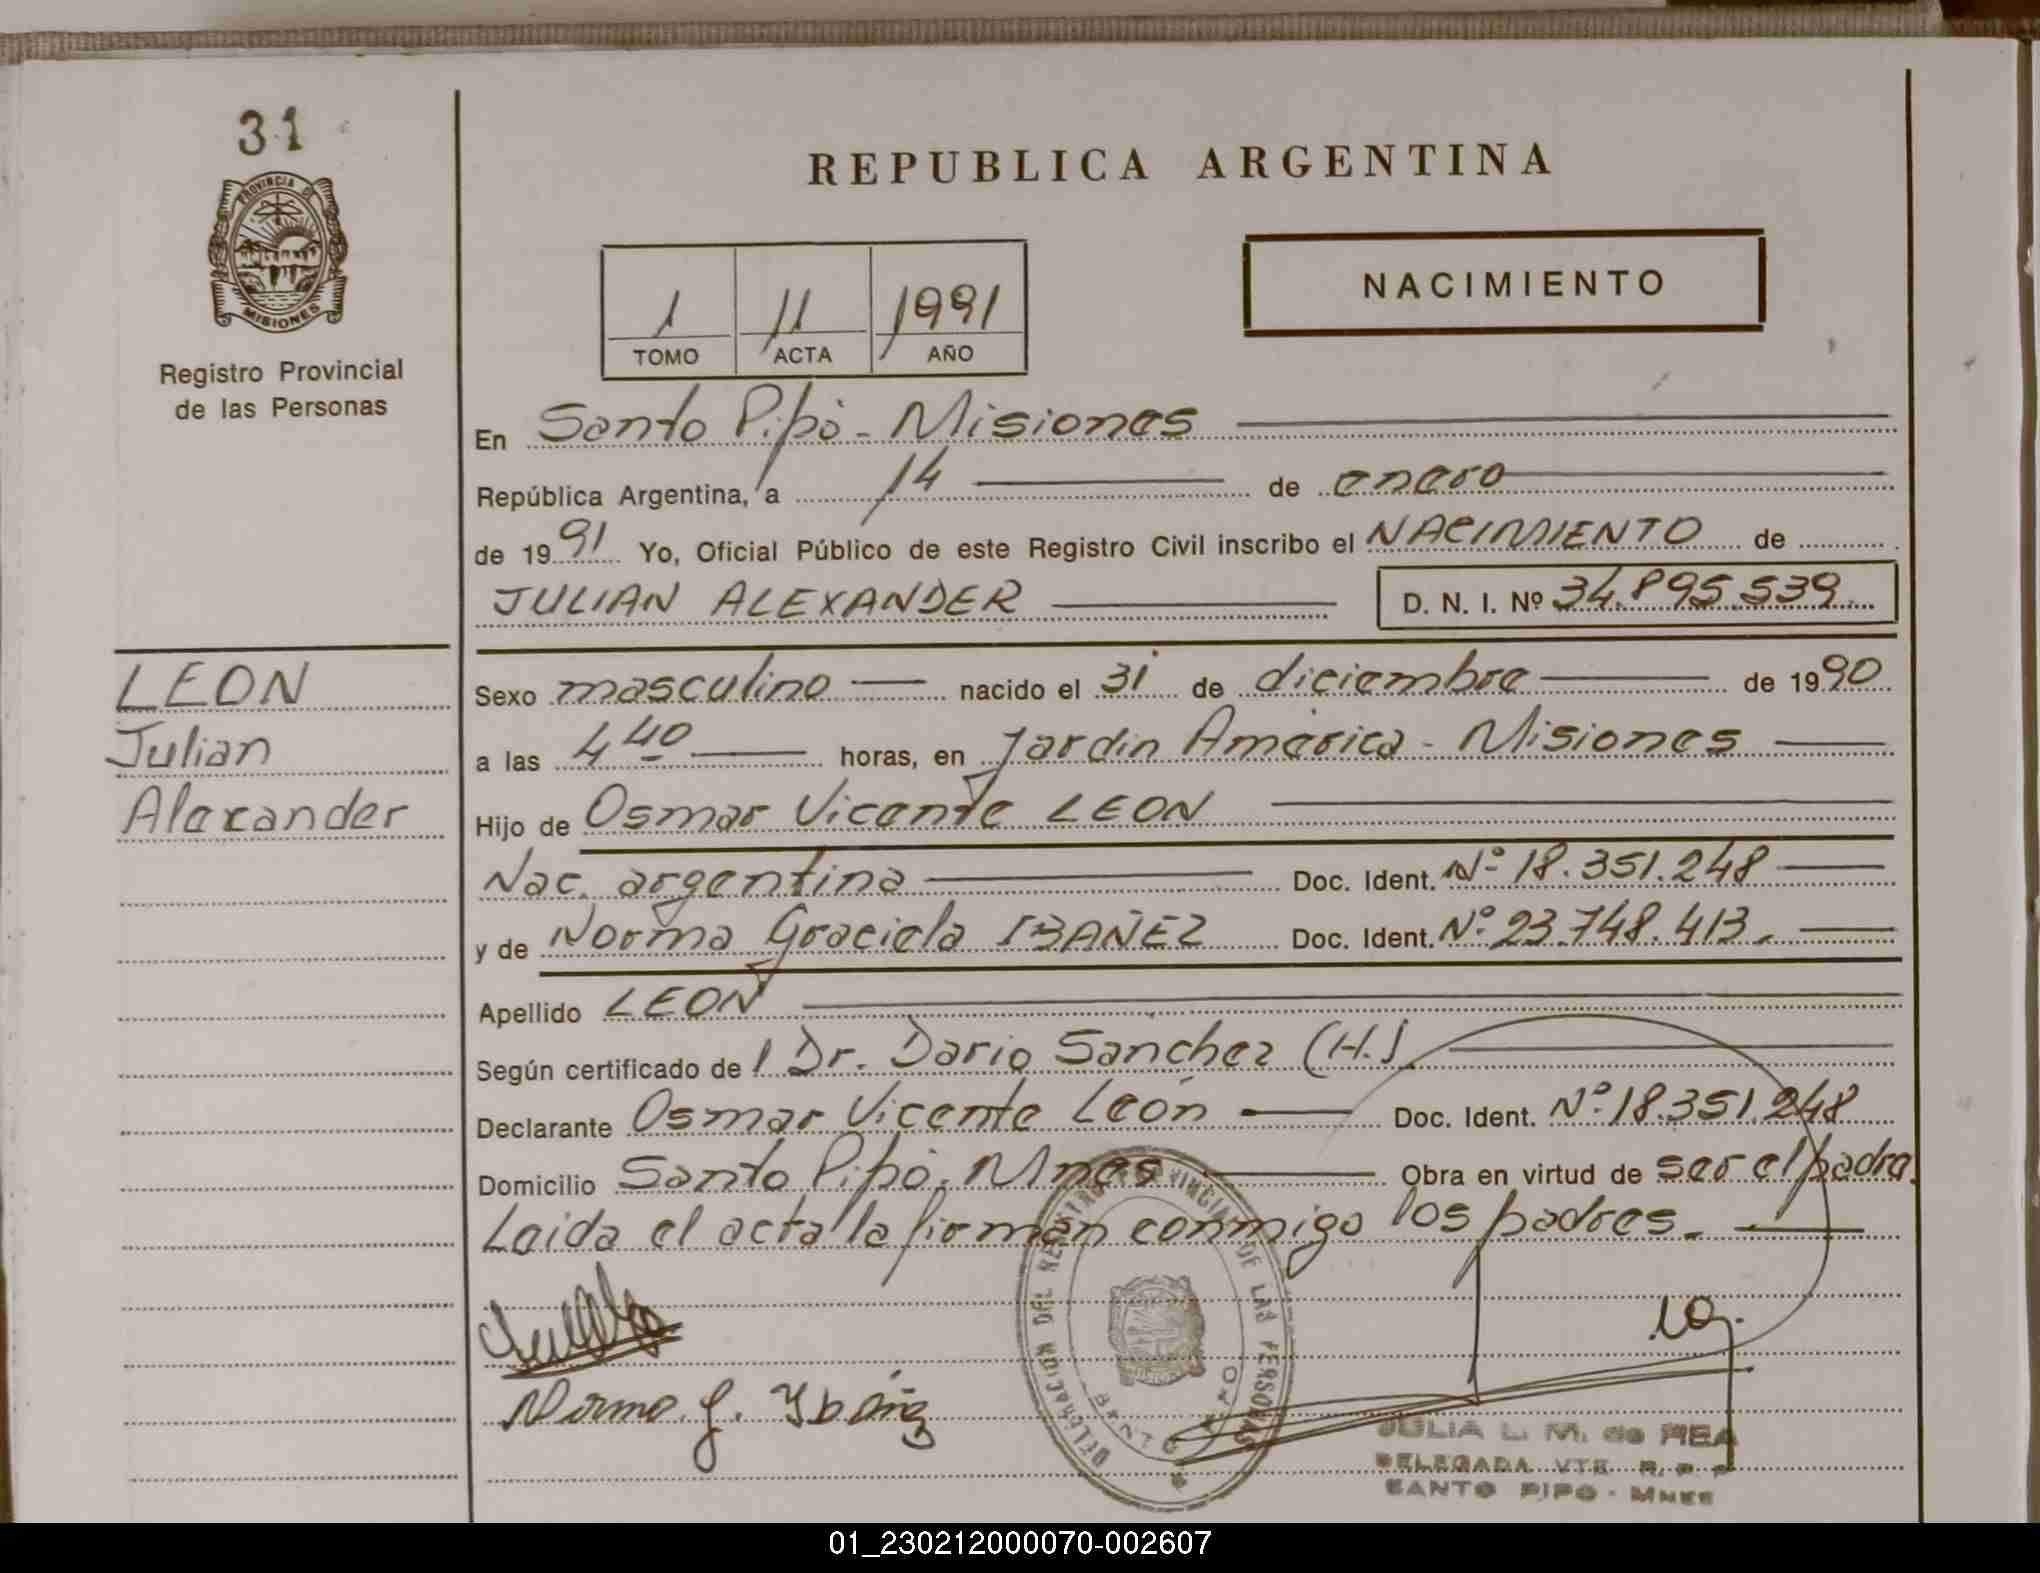 31
PROVINCIA DE
MISIONES
Registro Provincial
de las Personas
LEON
Julian
Alexander
REPUBLICA ARGENTINA
1 11 1991
TOMO ACTA AÑO
NACIMIENTO
En Santo Pipó - Misiones
República Argentina, a 14 de enero
de 1991 Yo, Oficial Público de este Registro Civil inscribo el NACIMIENTO de
JULIAN ALEXANDER D. N. I. Nº 34.895.539
Sexo masculino nacido el 31 de diciembre de 1990
a las 4 40 horas, en Jardín América - Misiones
Hijo de Osmar Vicente LEON
Nac. argentina Doc. Ident. Nº 18.351.248
y de Norma Graciela IBAÑEZ Doc. Ident. Nº 23.748.413.
Apellido LEON
Según certificado de l Dr. Dario Sánchez (H.)
Declarante Osmar Vicente León Doc. Ident. Nº 18.351.248
Domicilio Santo Pipó. Mnes Obra en virtud de ser el padre.
Leida el acta la firman conmigo los padres.
Norma. G. Ybáñez
DELEGACION DEL REGISTRO PROVINCIAL DE LAS PERSONAS
SANTO PIPO
JULIA L. M. de REA
DELEGADA VTE. R. P. P.
SANTO PIPO - MNES
01_230212000070-002607